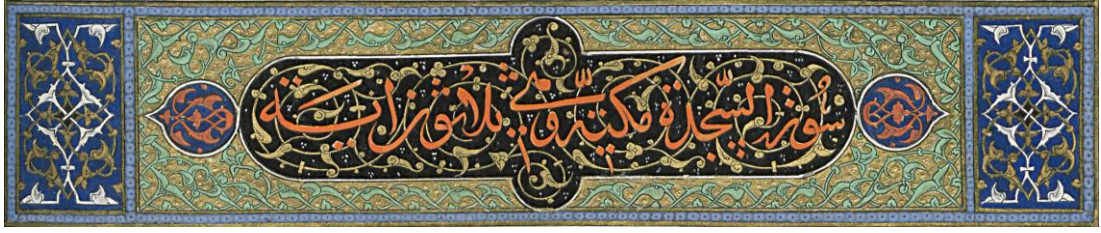 سورة السجدة مكية وهي ثلاثون اية